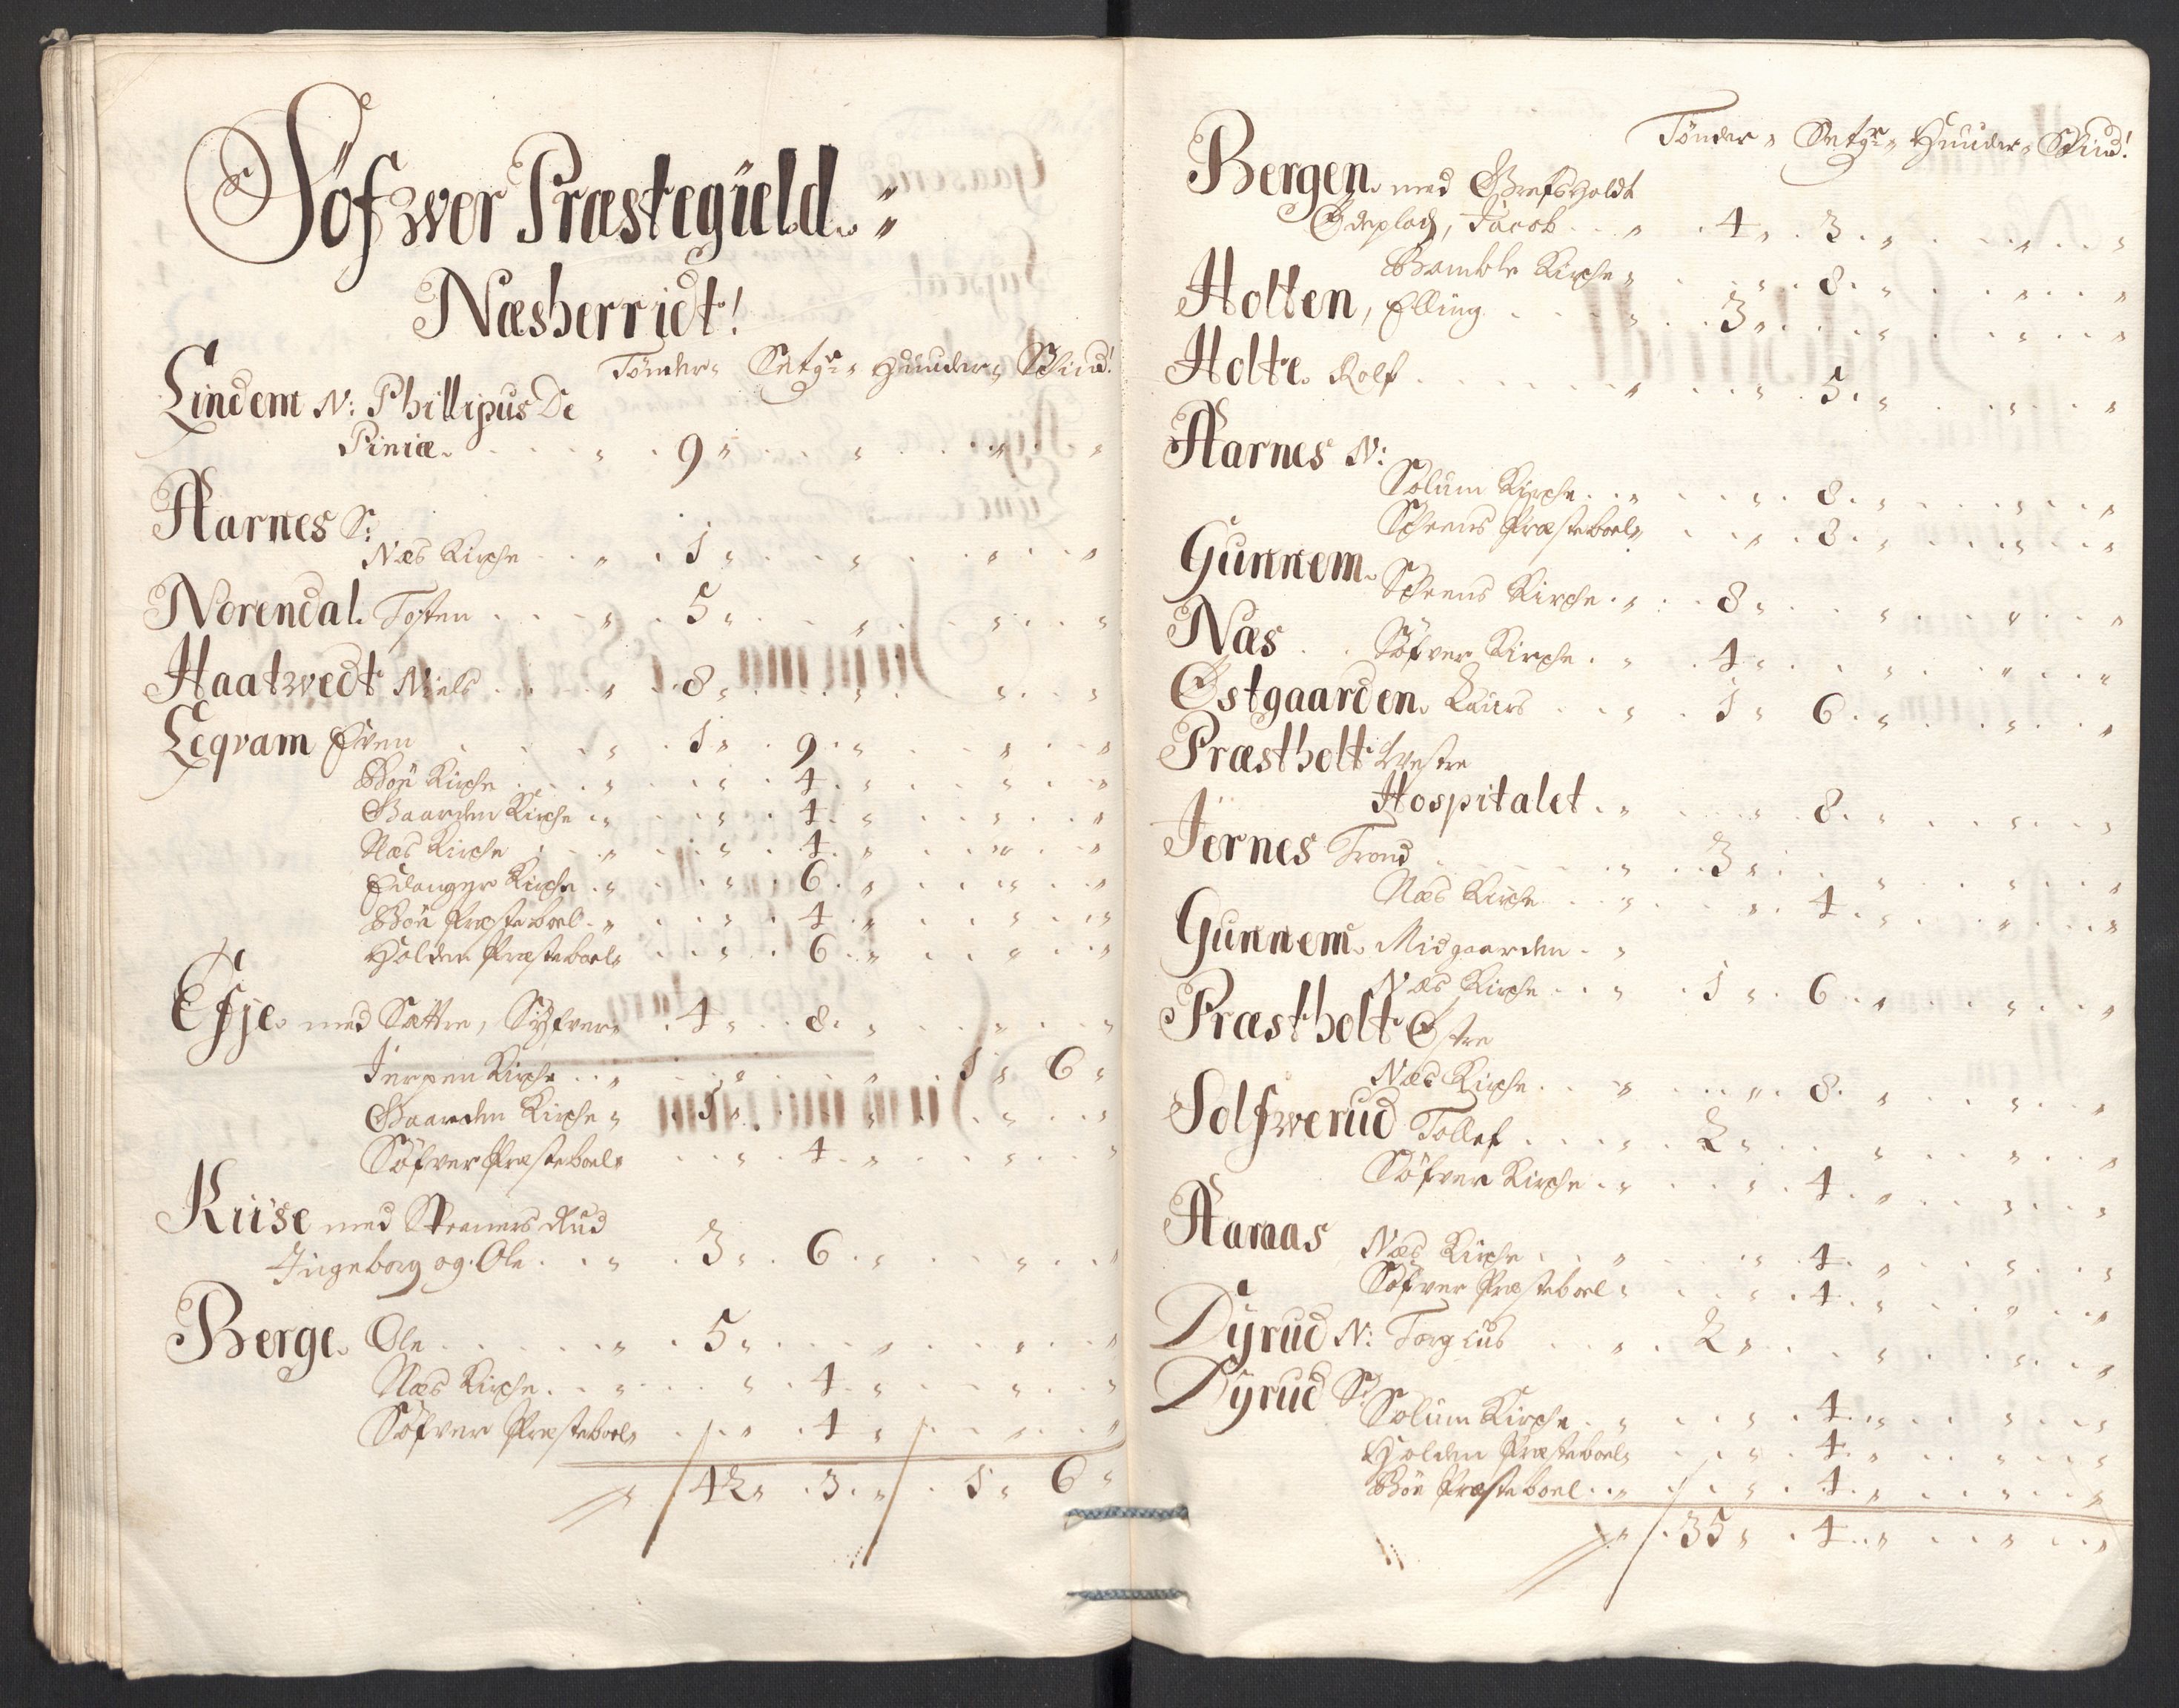 Söfwer Præstegield
Næsherridt!
Tönder Setgr Huuder Skind!
Lindem N: Phillipus De
Piniæ 9
Aarnes S:
Næs Kirche 1
Norendal Tosten 5
Haatwedt Niels 8
Leqvam Even 1 9
Böe Kirche 4
Gaarden Kirche 4
Næs Kirche 4
Eidanger Kirche 6
Böe Præsteboel 4
Holden Præsteboel 6
Efje med Sættre, Syfver 4 8
Jerpen Kirche 1 6
Gaarden Kirche 1
Söfver Præsteboel 4
Kiise med Rud
Ingeborg og Ole 3 6
Berge Ole 5
Næs Kirche 4
Söfver Præsteboel 4
42 3 1 6
Tönder Setgr Huuder Skind!
Bergen med Grefsholdt
Ödeplads, Jacob 4 3
Bamble Kirche 8
Holten, Elling 3
Holte Rolf 5
Aarnes N:
Solum Kirche 8
Scheens Præsteboel 8
Gunnem Scheens Kirche 8
Næs Söfver Kirche 4
Østgaarden Laurs 1 6
Præstholt Westre
Hospitalet 8
Jernes Trond 3
Næs Kirche 4
Gunnem Midgaarden
Næs Kirche 1 6
Præstholt Østre
Næs Kirche 8
Solfwerud Tollef 2
Söfver Kirche 4
Aaraas Næs Kirche 4
Söfver Præsteboel 4
Dyrud N: Torgius 2
Dyrud S: Solum Kirche 4
Holden Præsteboel 4
Böe Præsteboel 4
35 4